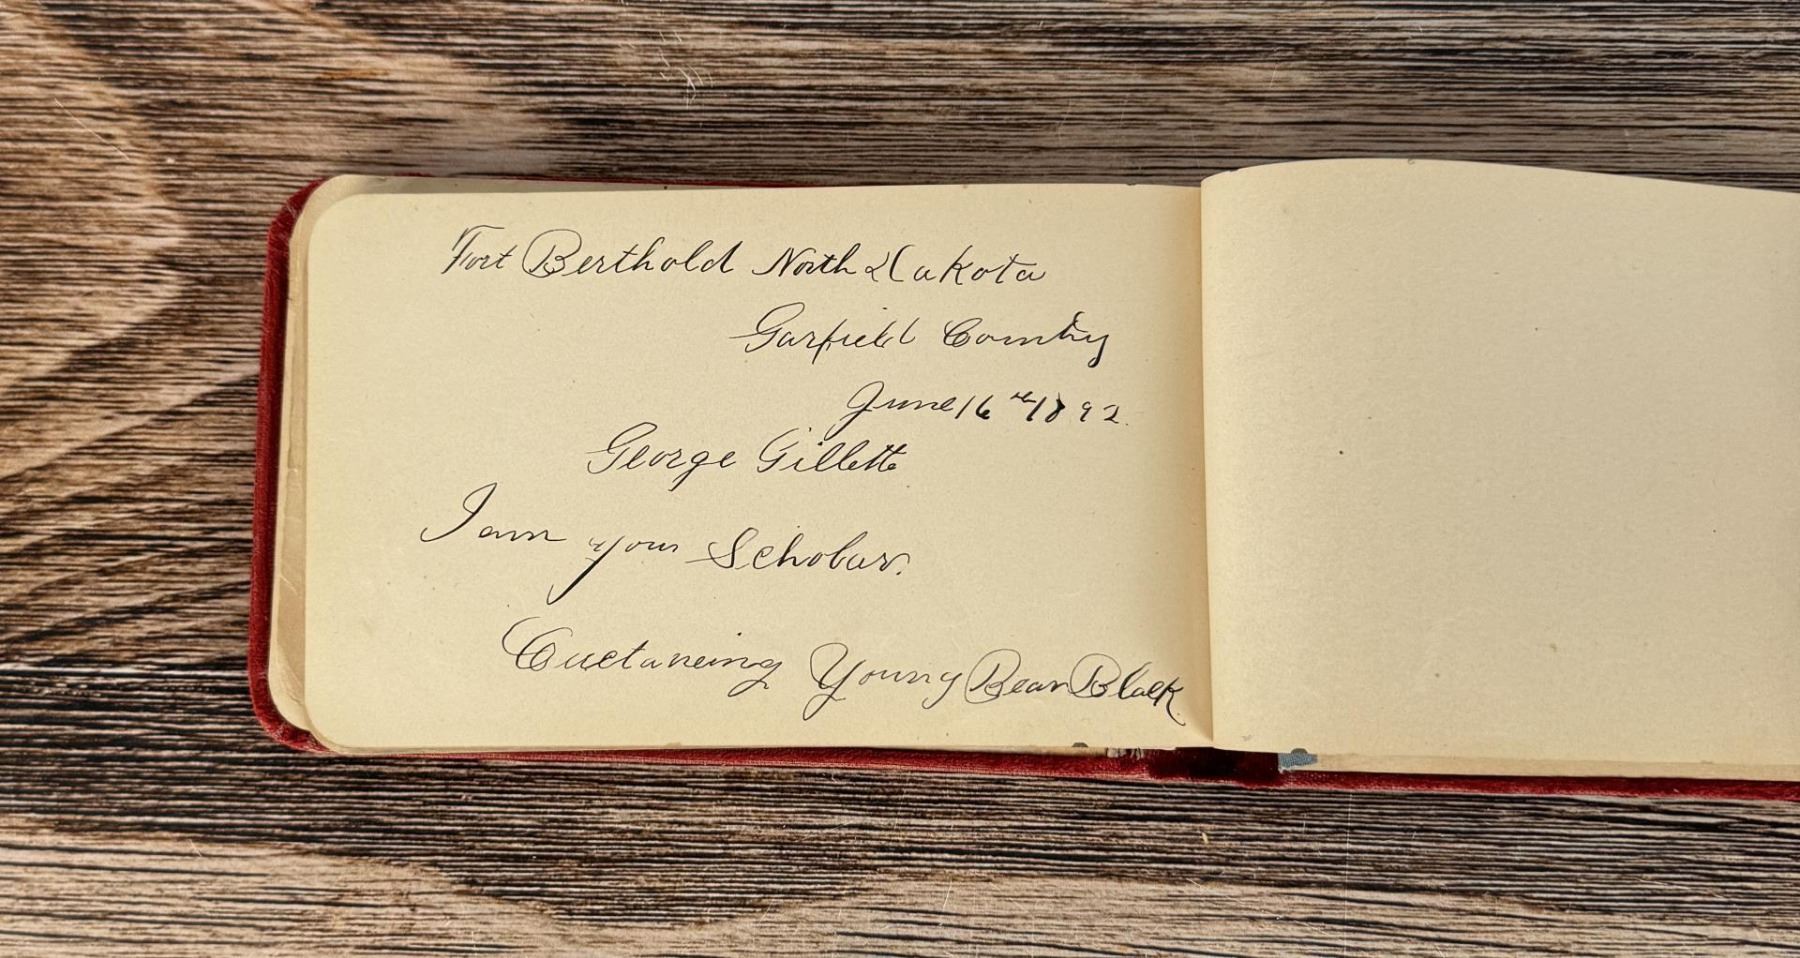 Fort Berthold North Dakota
Garfield County
June 16th 1892.
George Gillette
I am your Scholar.
Young Bear Black.